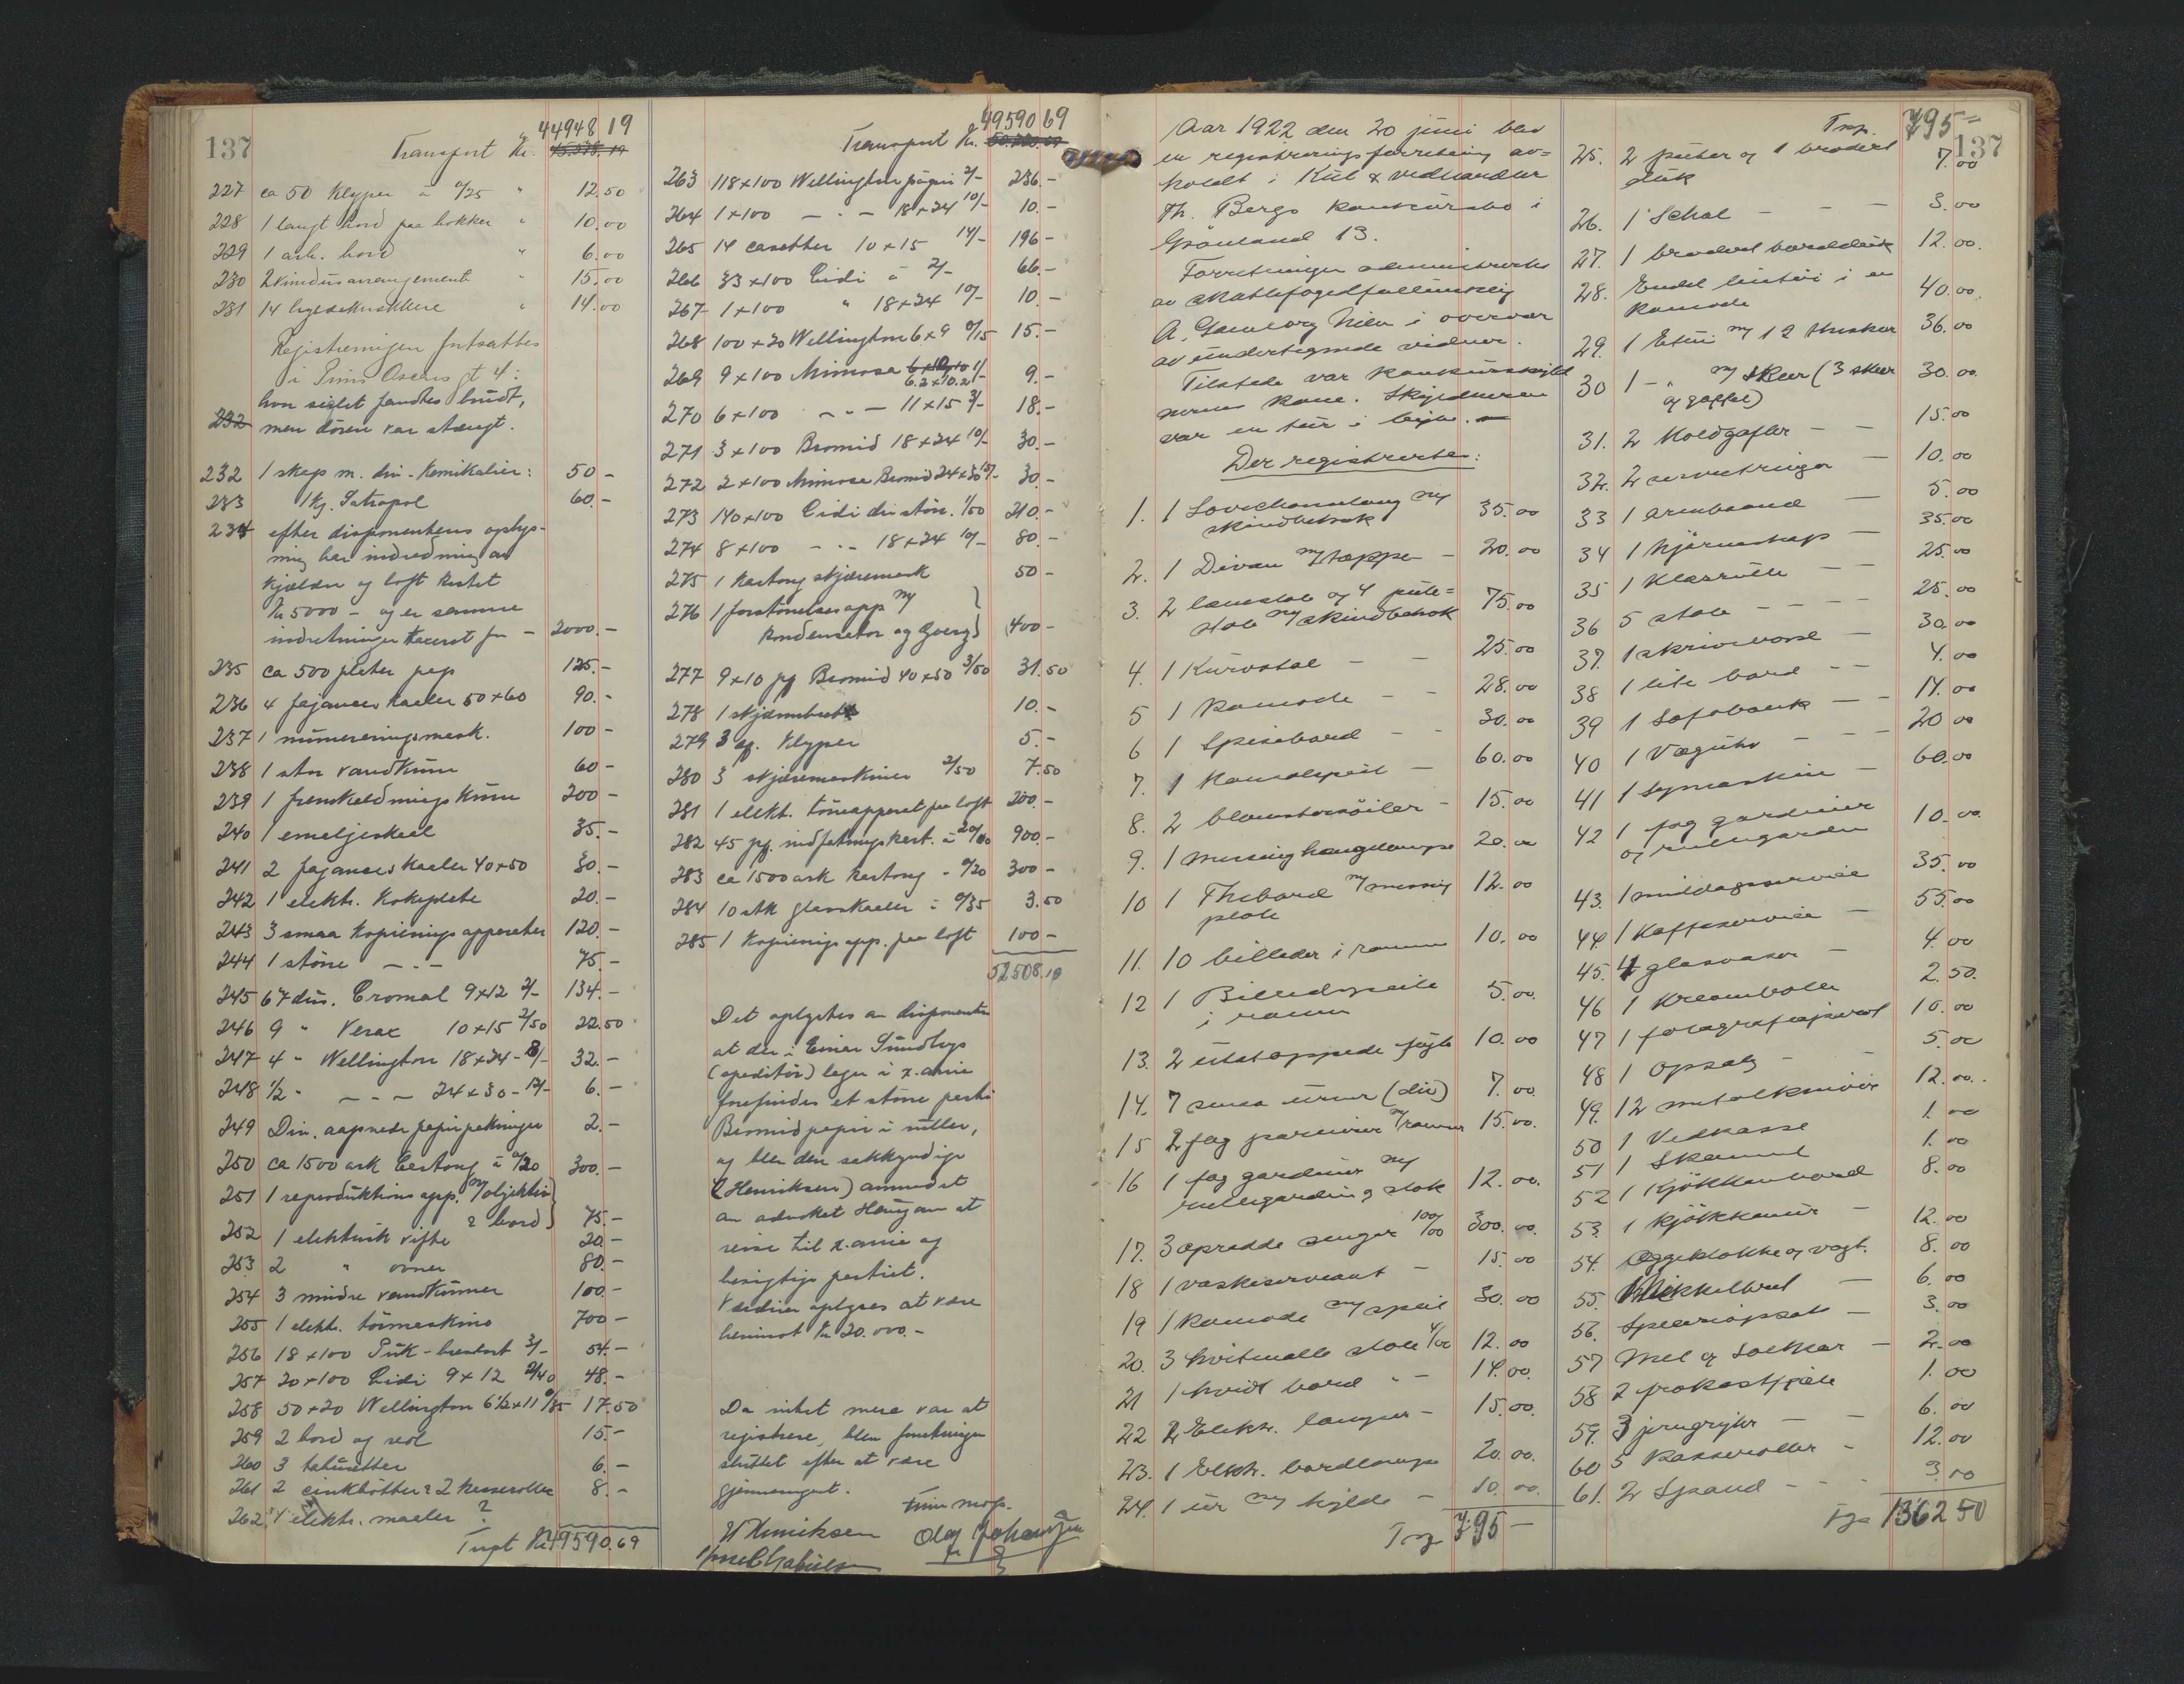 137
44948 19
Transport Kr. 45.578.19
227 ca 50 Klyper à 0/25 " 12.50
228 1 langt bord paa bokker " 10.00
229 1 arb. bord " 6.00
230 2 vindusarrangement " 15.00
231 14 " 14.00
Registreringen fortsattes
i Prins Oscars gt 4:
hvor seglet fandtes brudt,
232 men døren var stængt.
232 1 skap m. div. Kemikalier: 50 -
233 1 kg. Satrapol 60.-
234 efter disponentens oplys-
ning har indredning av
kjælder og loft kostet
Kr 5000 - og er samme
indretninger taxeret for - 2000.-
235 ca 500 plater pap 125.-
236 4 fajanceskaaler 50x60 90.-
237 1 numereringsmask. 100 -
238 1 stor vandkum 60 -
239 1 fremkaldningskum 200 -
240 1 emaljeskaal 35.-
241 2 fajanceskaaler 40x50 30.-
242 1 elektr. Kokeplate 20.-
243 3 smaa kopieringsapparater 120.-
244 1 større - . - 75.-
245 67 dus. Cromal 9x12 2/- 134.-
246 9 " Verax 10x15 2/50 22.50
247 4 - Wellington 18x24 - 8/- 32.-
248 1/2 " - - - 24x30 - 12/- 6.-
249 Div. aapnede papirpakninger 2.-
250 ca 1500 ark Cartong à 0/20 300.-
251 1 reproduktions app. m/ objektiv
& bord 75.-
252 1 elektrisk vifte 20.-
253 2 " ovner 80.-
254 3 mindre vandkummer 100.-
255 1 elektr. tørmaskine 700 -
256 18x100 3/- 54.-
257 20x100 Ridi 9x12 2/40 48.-
258 50x20 Wellington 6 1/2x11 0/35 17.50
259 2 bord og reol 15.-
260 3 taburetter 6.-
261 2 zinkbøtter & 2 kasseroller 8.-
262 1 elektr. maaler ?
Trspt Kr 49590.69
49590 69
Transport Kr. 50.220.69
263 118x100 Wellington papir 2/- 236.-
264 1x100 - . - 18x24 10/- 10.-
265 14 casetter 10x15 14/- 196 -
266 33x100 Ridi à 2/- 66.-
267 1x100 " 18x24 10/- 10.-
268 100x20 Wellington 6x9 0/15 15.-
269 9x100 Mimosa 6.2x10.2 1/- 9.-
270 6x100 - . - 11x15 3/- 18.-
271 3x100 Bromid 18x24 10/- 30.-
272 2x100 Mimosa Bromid 24x30 15/- 30.-
273 140x100 Ridi div størr. 1/50 210.-
274 8x100 - . - 18x24 10/- 80.-
275 1 kartong skjæremask 50 -
276 1 forstørrelsesapp m/
kondensator og 400 -
277 9x10 pf Bromid 40x50 3/50 31.50
278 1 skjærebret 10.-
279 3 es. Klyper 5.-
280 3 skjæremaskiner 2/50 7.50
281 1 elektr. tørreapparat paa loft 200.-
282 45 pf. indfatningskart. à 20/00 900.-
283 ca 1500 ark kartong - 0/20 300 -
284 10 stk glasskaaler à 0/35 3.50
285 1 Kopieringsapp. paa loft 100 -
52508.19
Det oplystes av disponenten
at der i Einar Sundbys
(speditør) lager i X.ania
forefindes et større parti
Bromidpapir i ruller,
og blev den sakkyndige
(Henriksen) anmodet
av advokat Haugan at
reise til X.ania og
besigtige partiet.
Værdien oplyses at være
henimot Kr 20.000.-
Da intet mere var at
registrere, blev forretningen
sluttet efter at være
gjennemgaat.
W Henriksen Olaf Johansen
137
Aar 1922 den 20 juni blev
en registreringsforretning av=
holdt i Kul & vedhandler
Th. Bergs konkursbo i
Grönland 13.
Forretningen administrertes
av skattefogedfuldmægtig
A. i overvær
av undertegnede vidner.
Tilstede var konkursskyld
nerens kone. Skyldneren
var en tur i byen.
Der registrertes:
1. 1 m/
skindbetræk 35.00
2. 1 Divan m/ tæppe - 20.00
3. 2 lænestole og 4 pute=
stole m/ skindbetræk 75.00
4. 1 Kurvstol - - 25.00
5 1 Komode - - 28.00
6 1 Spisebord - - 30.00
7. 1 Konsolspeil - 60.00
8. 2 blomstersöiler - 15.00
9. 1 messing hængelampe 20.00
10 1 Thebord m/ messing 12.00
plate
11. 10 billeder i ramme 10.00
12 1 5.00
i ramme
13. 2 utstoppede fugle 10.00
14. 7 smaa urner (div) 7.00
15 2 fag portierer m/ rammer 15.00.
16 1 fag gardiner m/
rullegardin og stok 12.00.
17. 3 opredde senger 100/00 300.00.
18 1 vaskeservant - 15.00
19 1 Komode m/ speil 30.00
20. 3 hvitmalte stole 4/00 12.00
21 1 hvidt bord " - 14.00.
22 2 Elektr. lamper - 15.00.
23. 1 Elektr. bordlampe 20.00.
24. 1 ur m/ hylde - 10.00.
Trsp 795 -
Trsp. 795 =
25. 2 puter og 1 brodert
duk 7.00
26. 1 Schal - - - 3.00
27. 1 brodert borddduk 12.00.
28. Endel lintöi i en
komode 40.00.
29. 1 Etui m/ 12 theskeer 36.00
30 1 - " m/ skeer (3 skeer 30.00.
og gaffel)
31. 2 Koldgafler - - 15.00
32. 2 servietringer - 10.00
33 1 armbaand - 5.00
34 1 hjörneskap - 35.00
35 1 Klesrulle - - 25.00
36 5 stole - - - - 25.00
37. 1 skrivebord - 30.00
38 1 lite bord - - 4.00
39 1 Sofabænk - - 14.00
40 1 Vægur - - - 20 00
41 1 Symaskin - 60.00
42 1 fag gardiner
og rullegardin 10.00.
43. 1 middagsservice 35.00
44. 1 Kaffeservice - 55.00
45. 4 glasvaser - 4.00
46 1 Krambolle 2.50.
47 1 fotografiapparat 10.00
48 1 Opsats - - 5.00
49. 12 metalkniver 12.00.
50 1 Vedkasse 1.00
51 1 Skammel 1.00
52 1 Kjökkenbord 8.00
53. 1 kjökkenur - 12.00
54. Æggeklokke og vægt. 8.00
55. Nikkelbret - 6.00
56. Speceriopsats - 3.00
57 Mel og Saltkar - 2.00
58 2 frokostfjæle 1.00
59. 3 jerngryter - - 6.00
60 5 Kasseroller - 12.00
61. 2 Spand - - 3.00
Trsp 1362 50